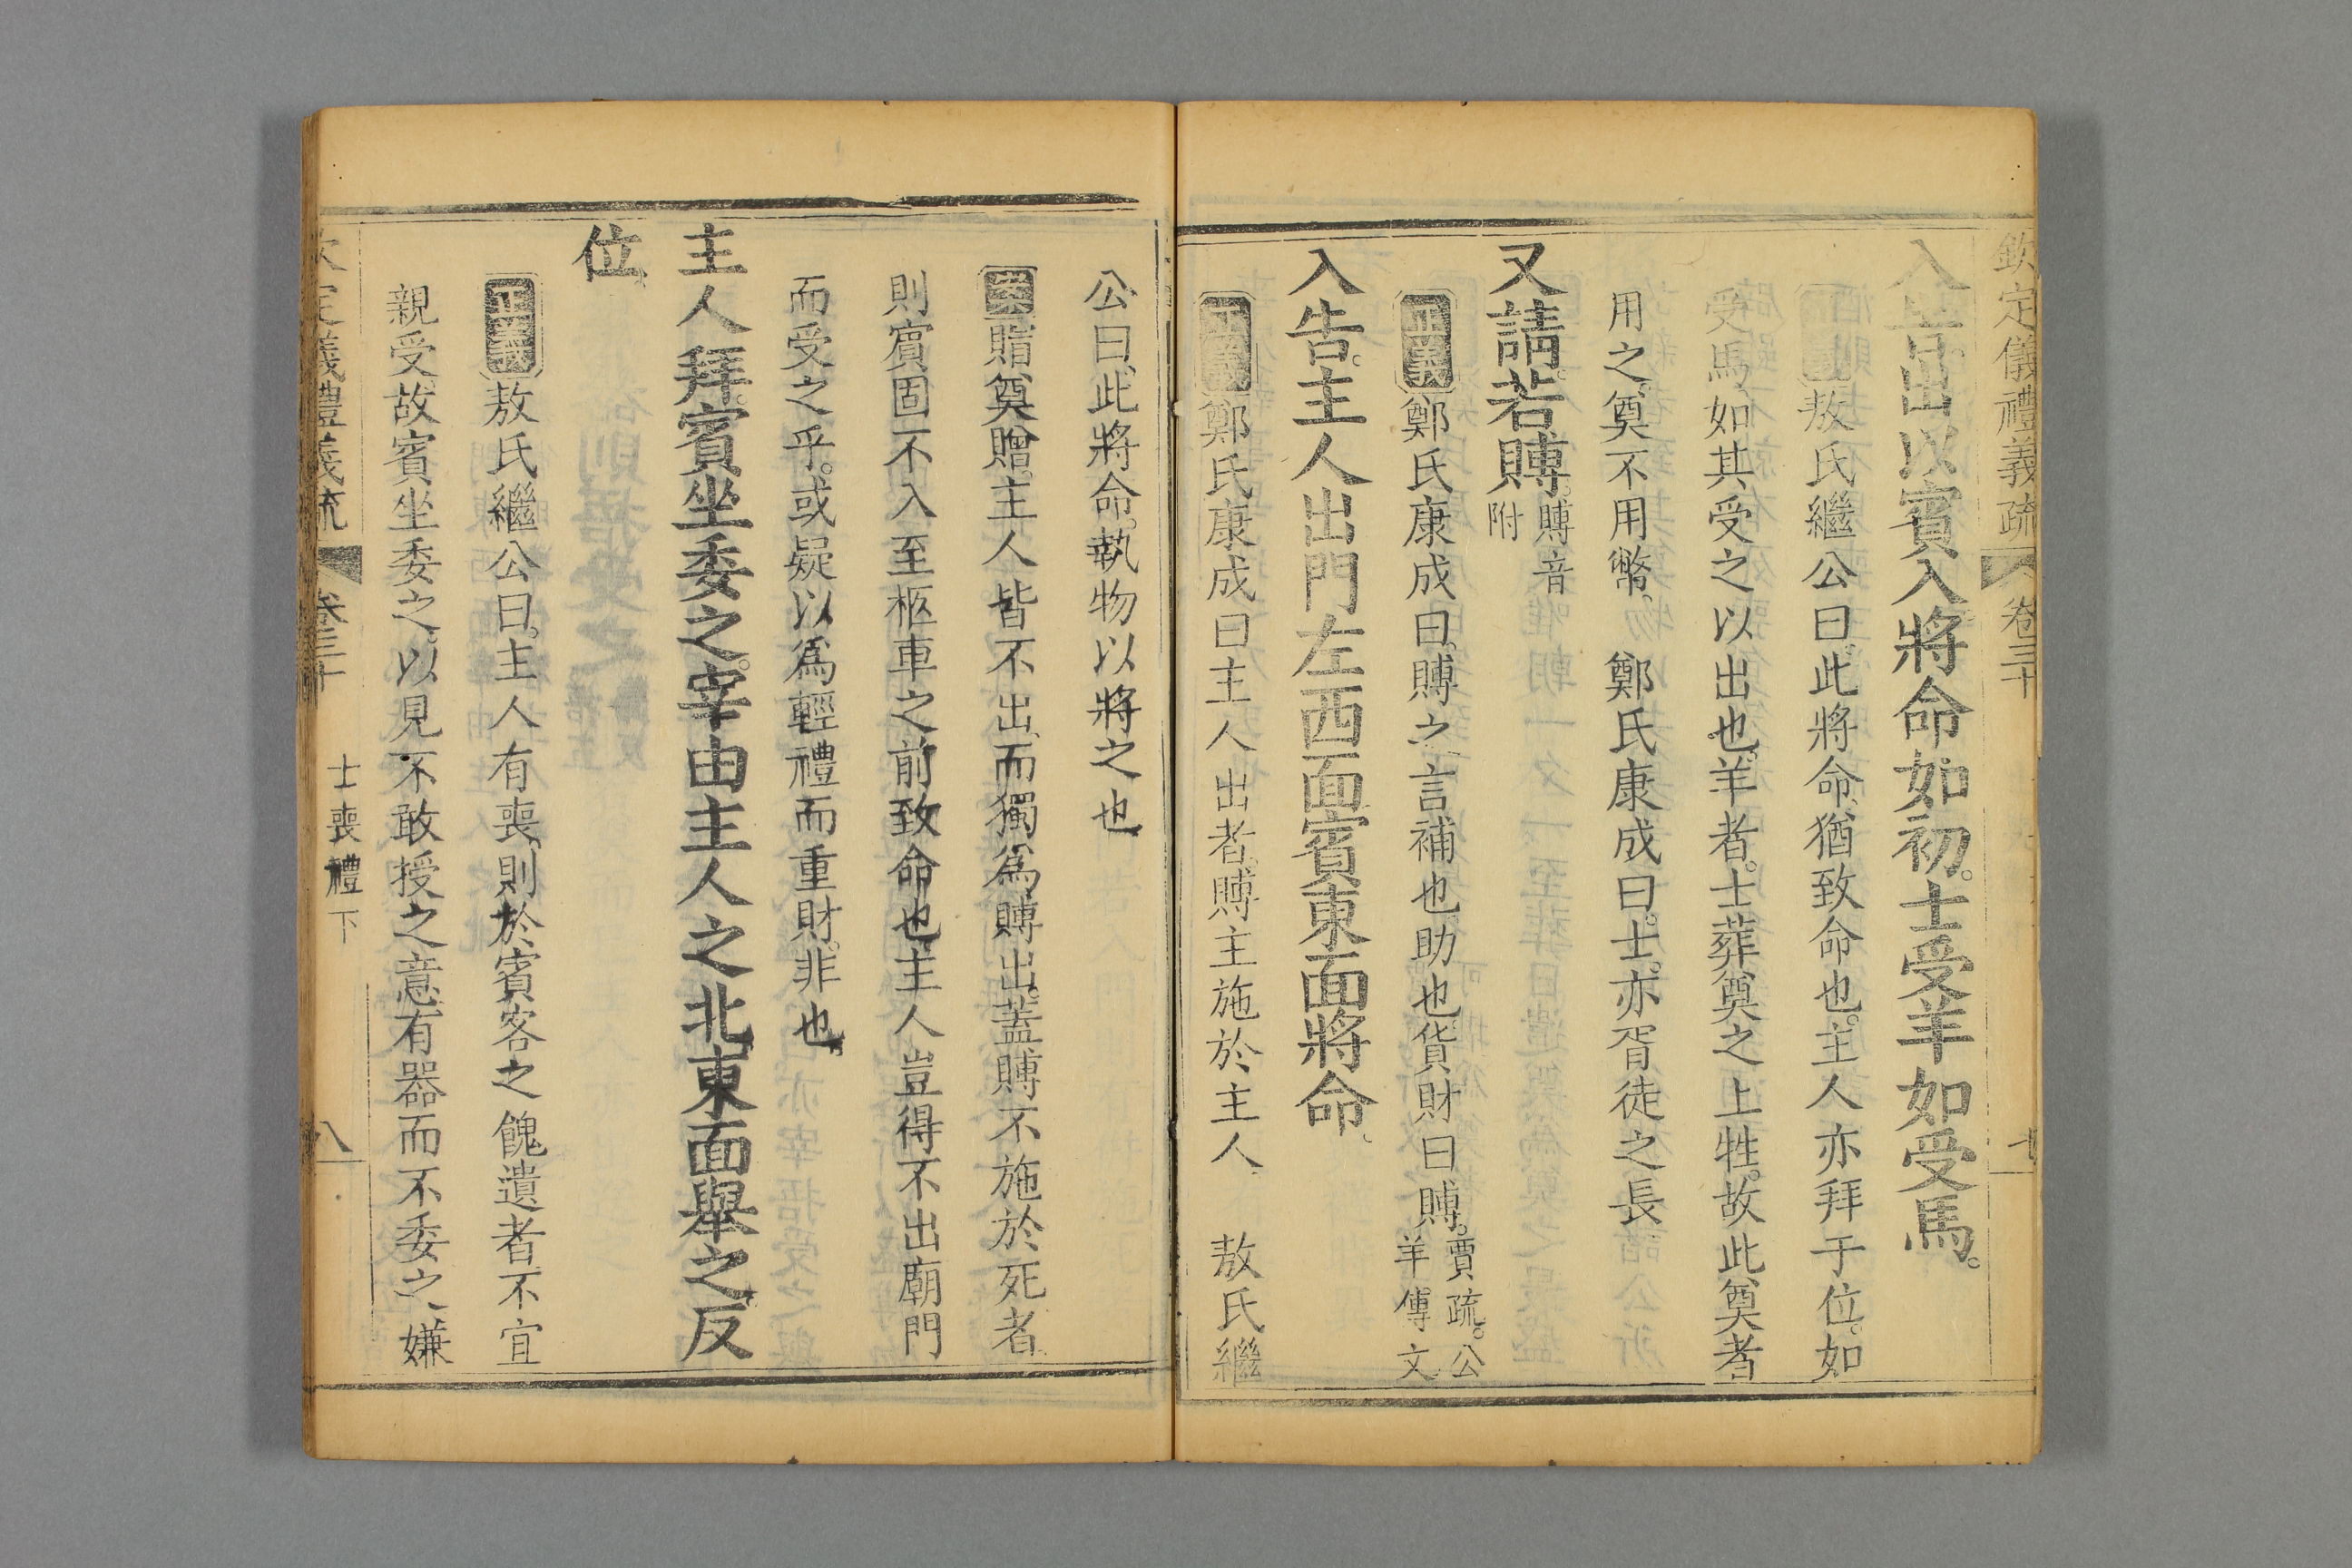 欽定儀禮義疏 卷三十 七
入告出以賓入將命如初。士受羊如受馬。
正義敖氏繼公曰、此將命、猶致命也。主人亦拜于位。如
受馬如其受之以出也。羊者。士葬奠之上牲。故此奠者
用之。奠不用幣。 鄭氏康成曰。士。亦胥徒之長
又請。若賻。賻音附
正義鄭氏康成曰。賻之、言補也。助也。貨財曰賻。賈疏。公羊傳文
入告。主人出門左西面賓東面將命、
正義鄭氏康成曰主人出者。賻主施於主人 敖氏繼
公曰、此將命。執物以將之也
案賵、奠、贈。主人皆不出、而獨爲賻出。蓋賻不施於死者、
則賓固不入至柩車之前致命也、主人豈得不出廟門
而受之乎。或疑以爲輕禮而重財。非也。
主人拜。賓坐委之。宰由主人之北東面舉之反
位、
正義敖氏繼公曰。主人有喪、則於賓客之餽遺者、不宜
親受。故賓坐委之。以見不敢授之意、有器而不委之、嫌
欽定儀禮義疏 卷三十 士喪禮下 八